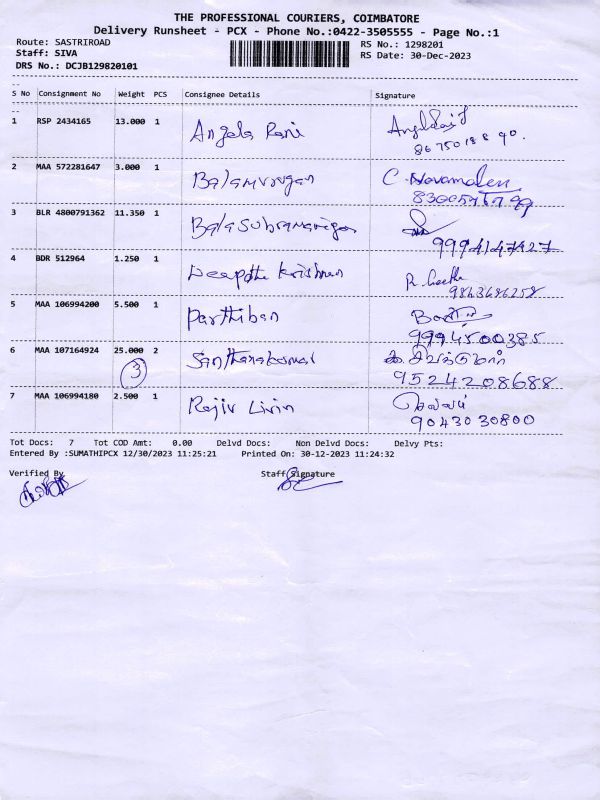 THE PROFESSIONAL COURIERS, COIMBATORE
Delivery Runsheet - PCX - Phone No.:0422-3505555 - Page No.:1
Route: SASTRIROAD
Staff: SIVA
DRS No.: DCJB129820101
RS No.: 1298201
RS Date: 30-Dec-2023
S No Consignment No Weight PCS Consignee Details Signature
1 RSP 2434165 13.000 1 Angela Rani
2 MAA 572281647 3.000 1 Balamurugan
3 BLR 4800791362 11.350 1 Balasubramaniyan
9994147427
4 BDR 512964 1.250 1 Deepthi Krishnan R. Geetha
9843686258
5 MAA 106994200 5.500 1 Parthiban
9994500385
6 MAA 107164924 25.000 2 Santhanakumar
3
9524208688
7 MAA 106994180 2.500 1 Rajiv Livin
9043030800
Tot Docs: 7 Tot COD Amt: 0.00 Delvd Docs: Non Delvd Docs: Delvy Pts:
Entered By :SUMATHIPCX 12/30/2023 11:25:21 Printed On: 30-12-2023 11:24:32
Verified By Staff Signature